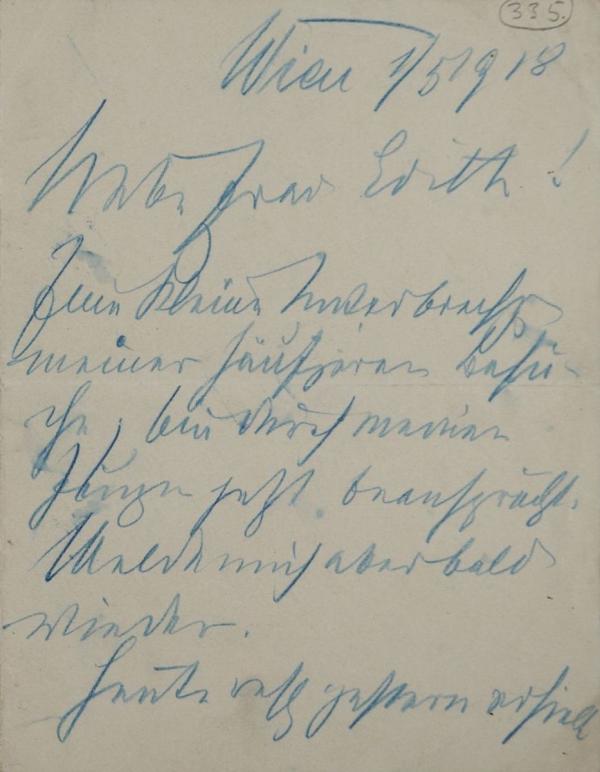 335.
Wien 1/5 1918
Liebe Frau Edith!
Eine kleine Unterbrechg
meiner häufigeren Besu-
che; bin durch meinen
Jungen jetzt beansprucht.
Melde mich aber bald
wieder.
Heute resp gestern erhielt